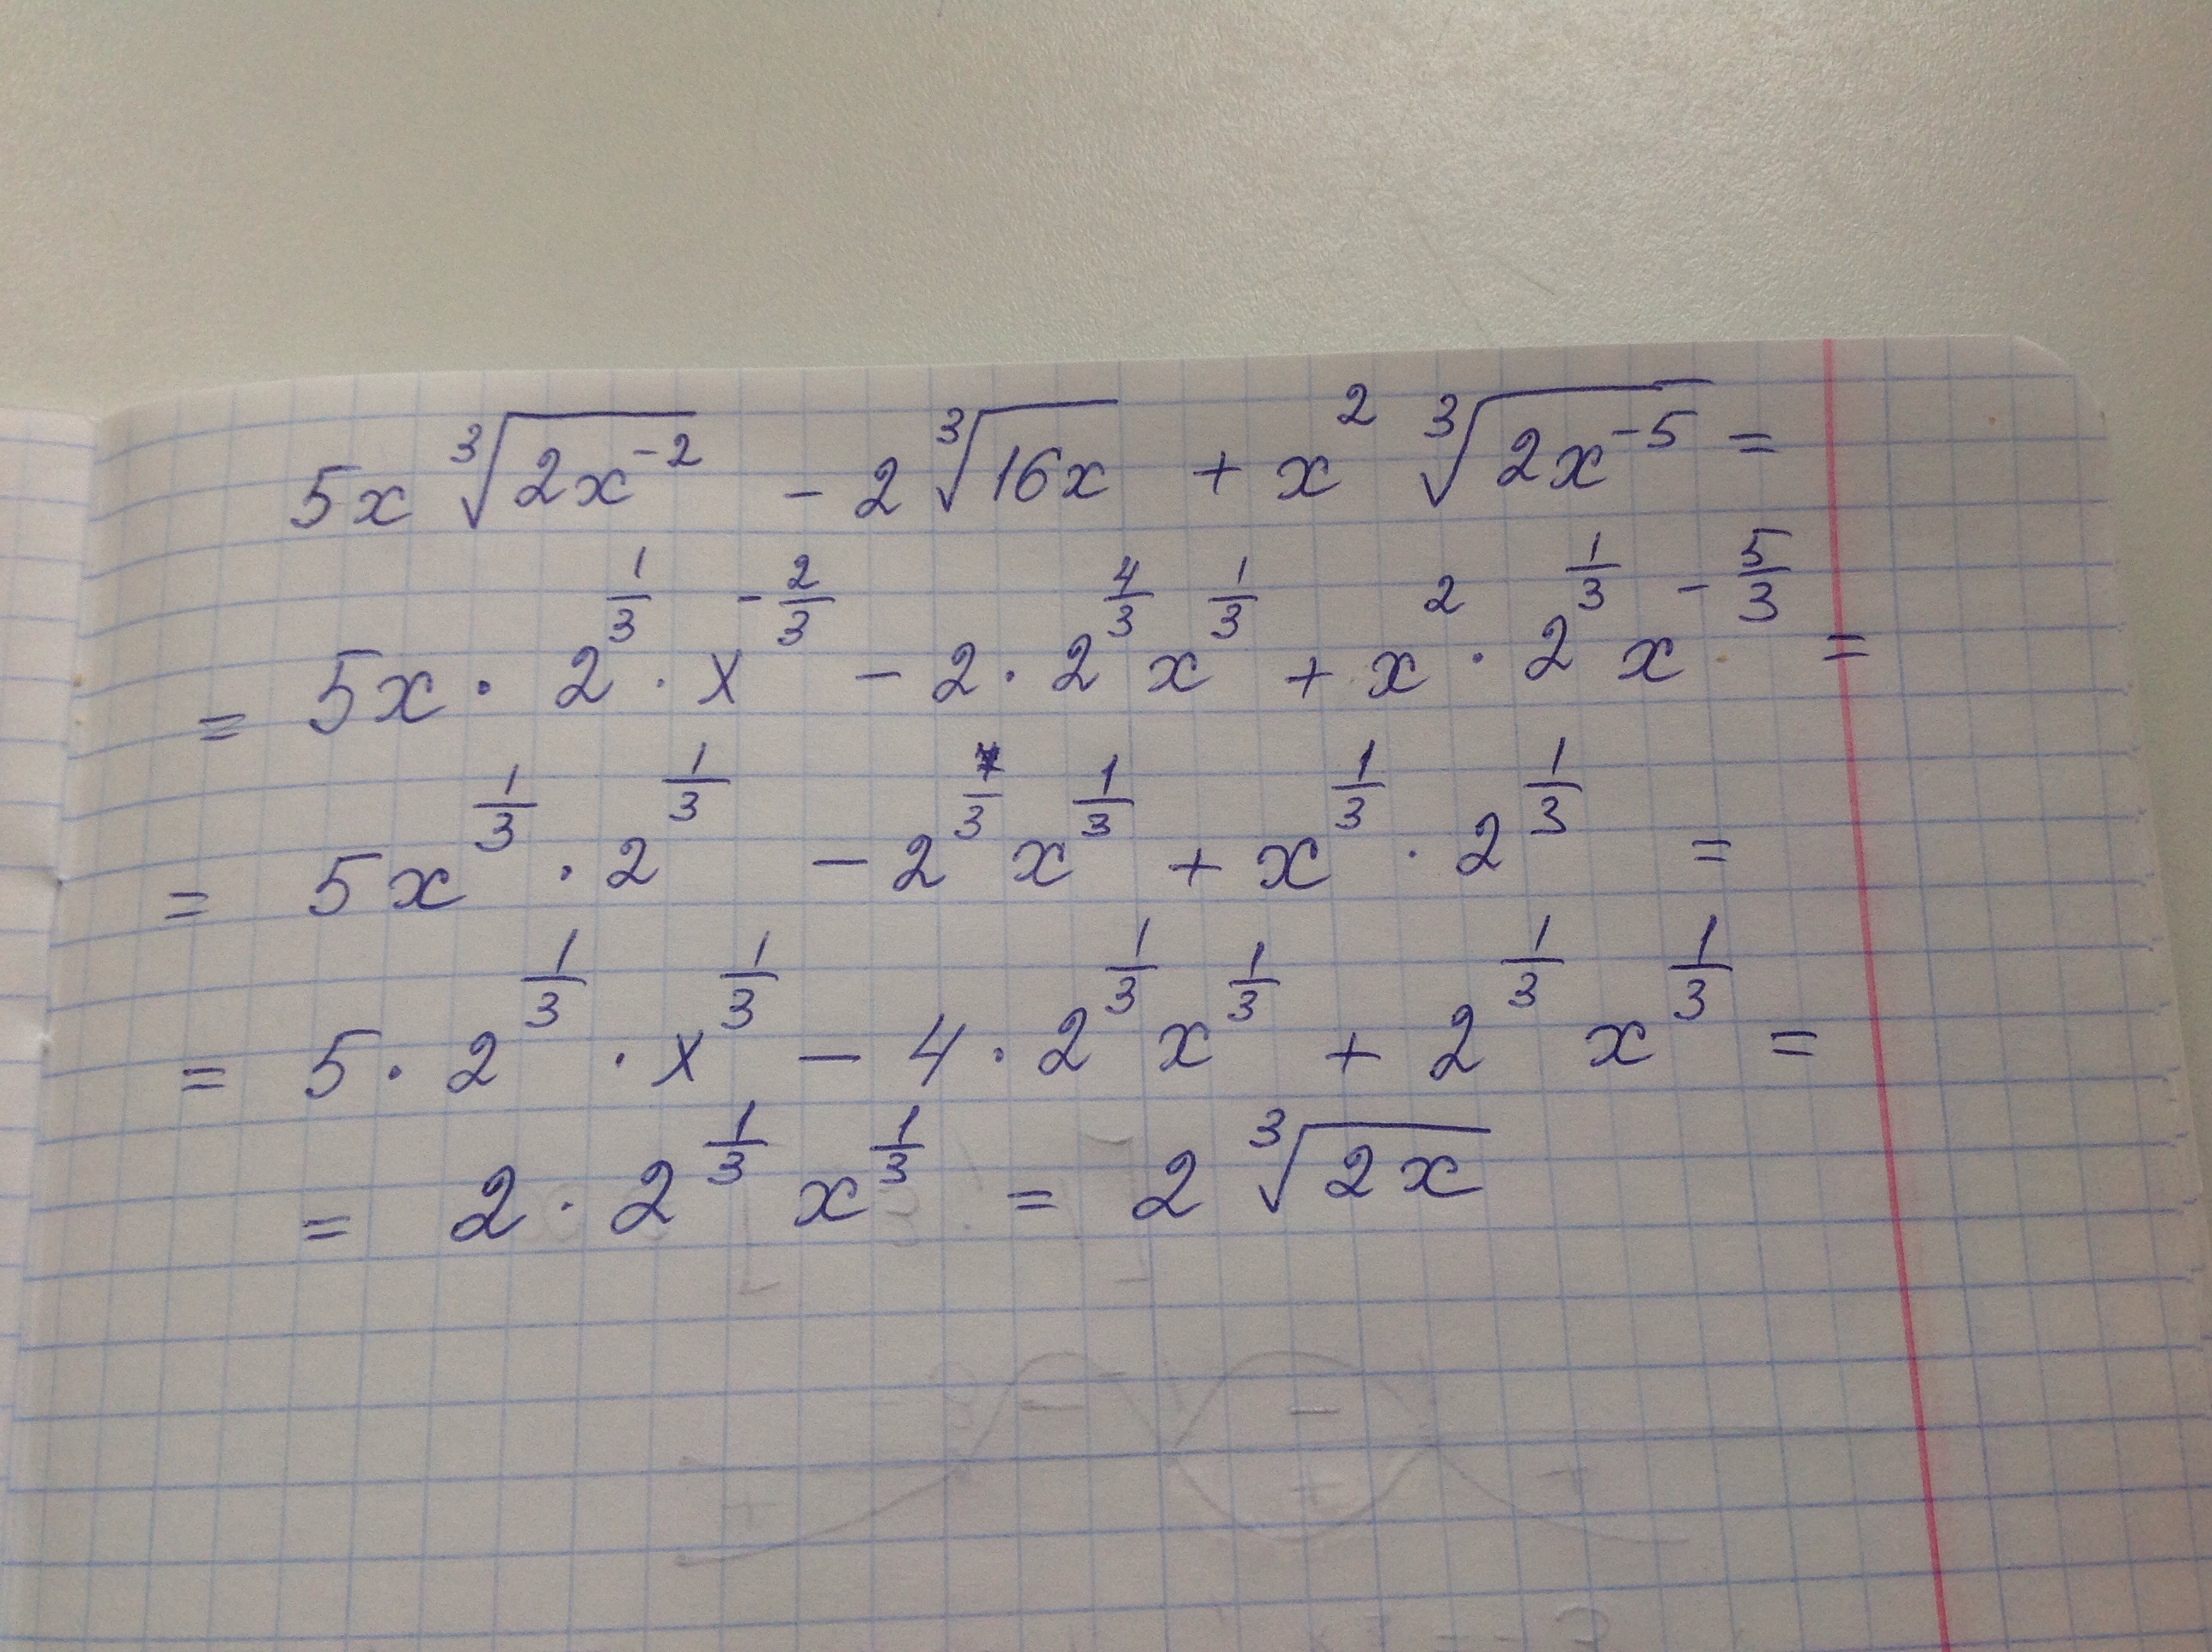 5x ∛(2x⁻²) - 2 ∛(16x) + x² ∛(2x⁻⁵) =
= 5x · 2^(1/3) · x^(-2/3) - 2 · 2^(4/3) x^(1/3) + x² · 2^(1/3) x^(-5/3) =
= 5x^(1/3) · 2^(1/3) - 2^(7/3) x^(1/3) + x^(1/3) · 2^(1/3) =
= 5 · 2^(1/3) · x^(1/3) - 4 · 2^(1/3) x^(1/3) + 2^(1/3) x^(1/3) =
= 2 · 2^(1/3) x^(1/3) = 2 ∛(2x)